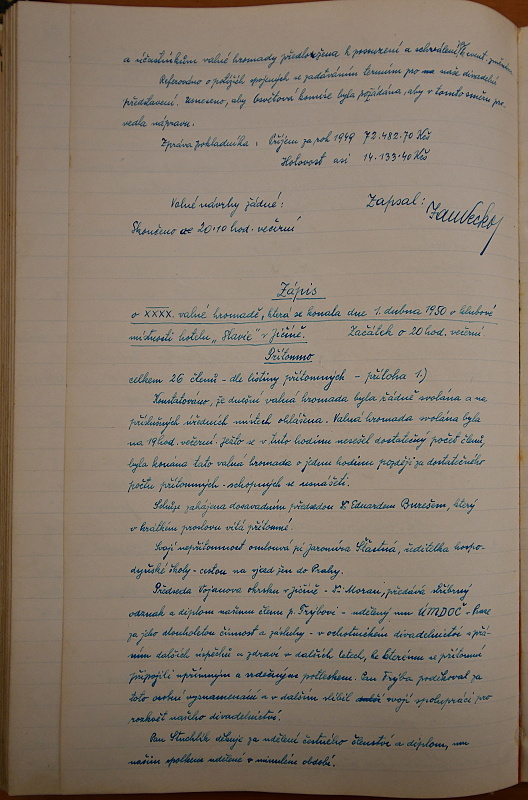 a účastníkům valné hromady předložena k posouzení a schválení
Referováno o potížích spojených se zadáváním termínu pro naše divadelní
představení. Usneseno, aby Osvětová komise byla požádána, aby v tomto směru pro-
vedla nápravu.
Zpráva pokladníka: Příjem za rok 1949 72.482·70 Kčs
Hotovost asi 14.133·40 Kčs
Volné návrhy žádné:
Zapsal:
Skončeno ve 20·10 hod. večerní
Zápis
o XXXX. valné hromadě, která se konala dne 1. dubna 1950 v klubové
místnosti hotelu „Slavie" v Jičíně. Začátek o 20 hod. večerní
Přítomno
celkem 26 členů - dle listiny přítomných - příloha 1.)
Konstatováno, že dnešní valná hromada byla řádně svolána a na
příslušných úředních místech ohlášena. Valná hromada svolána byla
na 19 hod. večerní. Ježto se v tuto hodinu nesešel dostatečný počet členů,
byla konána tato valná hromada o jednu hodinu později za dostatečného
počtu přítomných - schopných se usnášeti.
Schůze zahájena dosavadním předsedou Dr Eduardem Burešem, který
v krátkém proslovu vítá přítomné.
Svoji nepřítomnost omlouvá pí Jaromíra Šťastná, ředitelka hospo-
dyňské školy - cestou na sjezd žen do Prahy.
Předseda Vojanova okrsku v Jičíně - Dr. Moravi, předává stříbrný
odznak a diplom našemu členu p. Frýbovi - udělený mu ÚMDOČ - Praze
za jeho dlouholetou činnost a zásluhy - v ochotnickém divadelnictví s přá-
ním dalších úspěchů a zdraví v dalších letech, ke kterému se přítomní
připojili upřímným a srdečným potleskem. Pan Frýba poděkoval za
toto osobní vyznamenání a v dalším slíbil svojí spolupráci pro
rozkvět našeho divadelnictví.
Pan Stuchlík děkuje za udělení čestného členství a diplom, mu
naším spolkem udělené v minulém období.